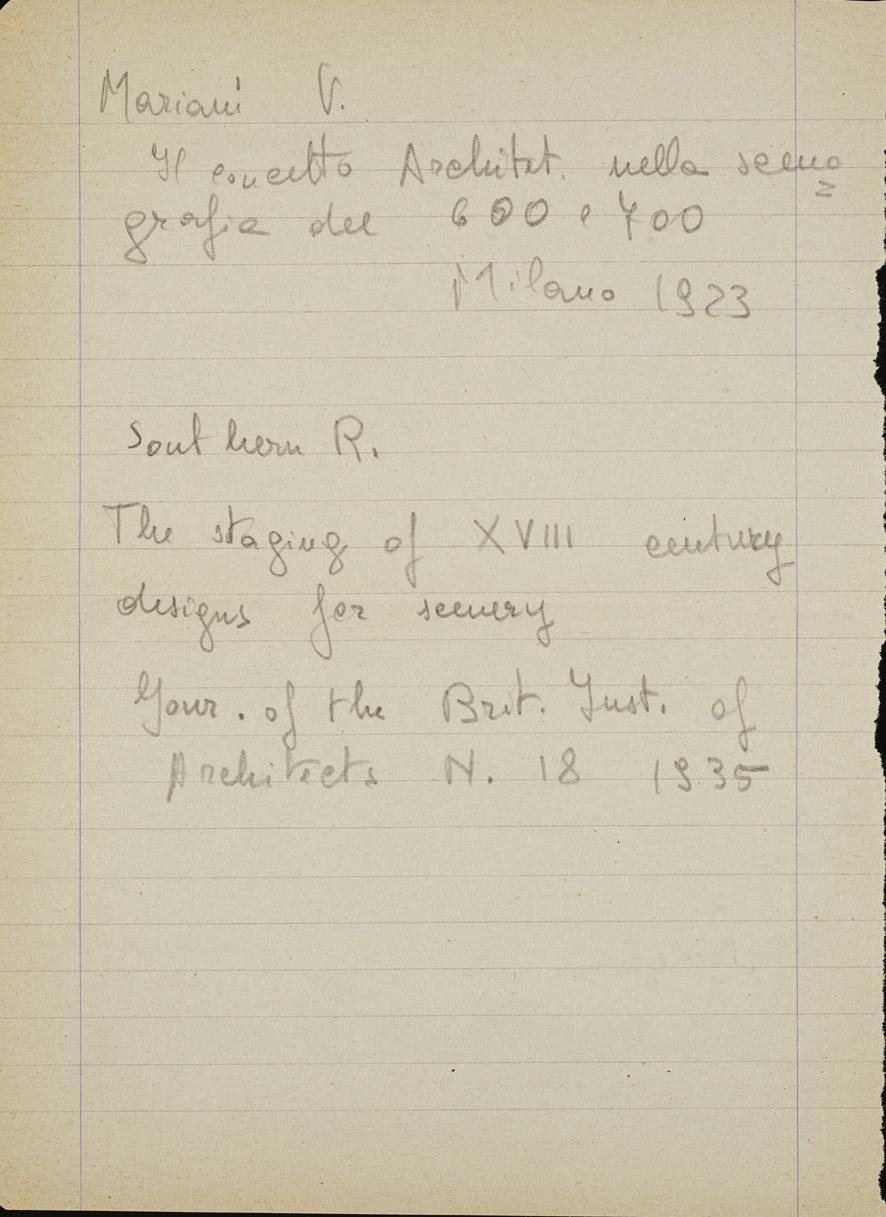 Mariani V.
Il concetto Architet. nella sceno=
grafia del 600 e 700
Milano 1923
Southern R.
The staging of XVIII century
designs for scenery
Jour. of the Brit. Inst. of
Architects N. 18 1935